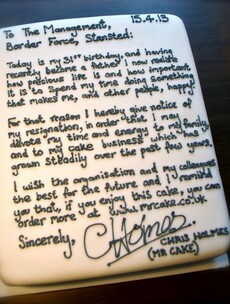 15.4.13
To The Management,
Border Force, Stansted:
Today is my 31st birthday, and having
recently become a father I now realise
how precious life is and how important
it is to spend my time doing something
that makes me, and other people, happy.
For that reason I hereby give notice of
my resignation, in order that I may
devote my time and energy to my family,
and to my cake business which has
grown steadily over the past few years.
I wish the organisation and my colleagues
the best for the future and I remind
you that, if you enjoy this cake, you can
order more at www.mrcake.co.uk.
Sincerely,
CHolmes
CHRIS HOLMES
(MR CAKE)